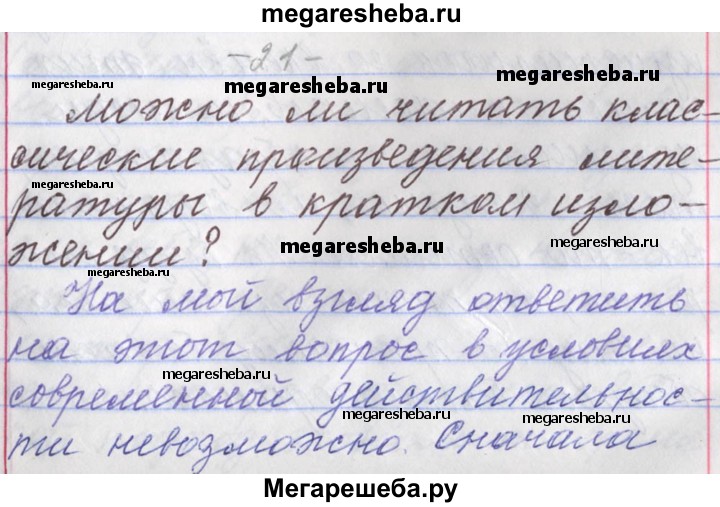 megaresheba.ru
-21-
megaresheba.ru
megaresheba.ru
Можно ли читать клас-
megaresheba.ru
сические произведения лите-
megaresheba.ru
ратуры в кратком изло-
megaresheba.ru
megaresheba.ru
жении?
megaresheba.ru
На мой взгляд ответить
на этот вопрос в условиях
megaresheba.ru
современной действительнос-
megaresheba.ru
megaresheba.ru
ти невозможно. Сначала
Мегарешеба.ру